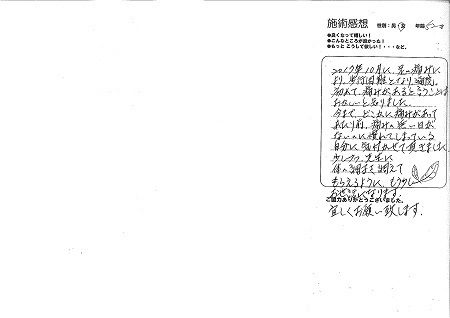 施術感想 性別：男・女 年齢 62才
●良くなって嬉しい！
●こんなところが良かった！
●もっとこうして欲しい！・・・など、
2017年10月に、足の痛みに
より、歩行困難となり、通院。
初めて、痛みがあるということは
おかしいと知りました。
今まで、どこかに痛みがあって
あたり前、痛みの無い日が
ないのに慣れてしまっている
自分に気付かせて頂きました。
少しづつ、先生に
体の調子を調えて
もらえるように、もう少し
お世話になります。
ご協力ありがとうございました。
宜しくお願い致します。